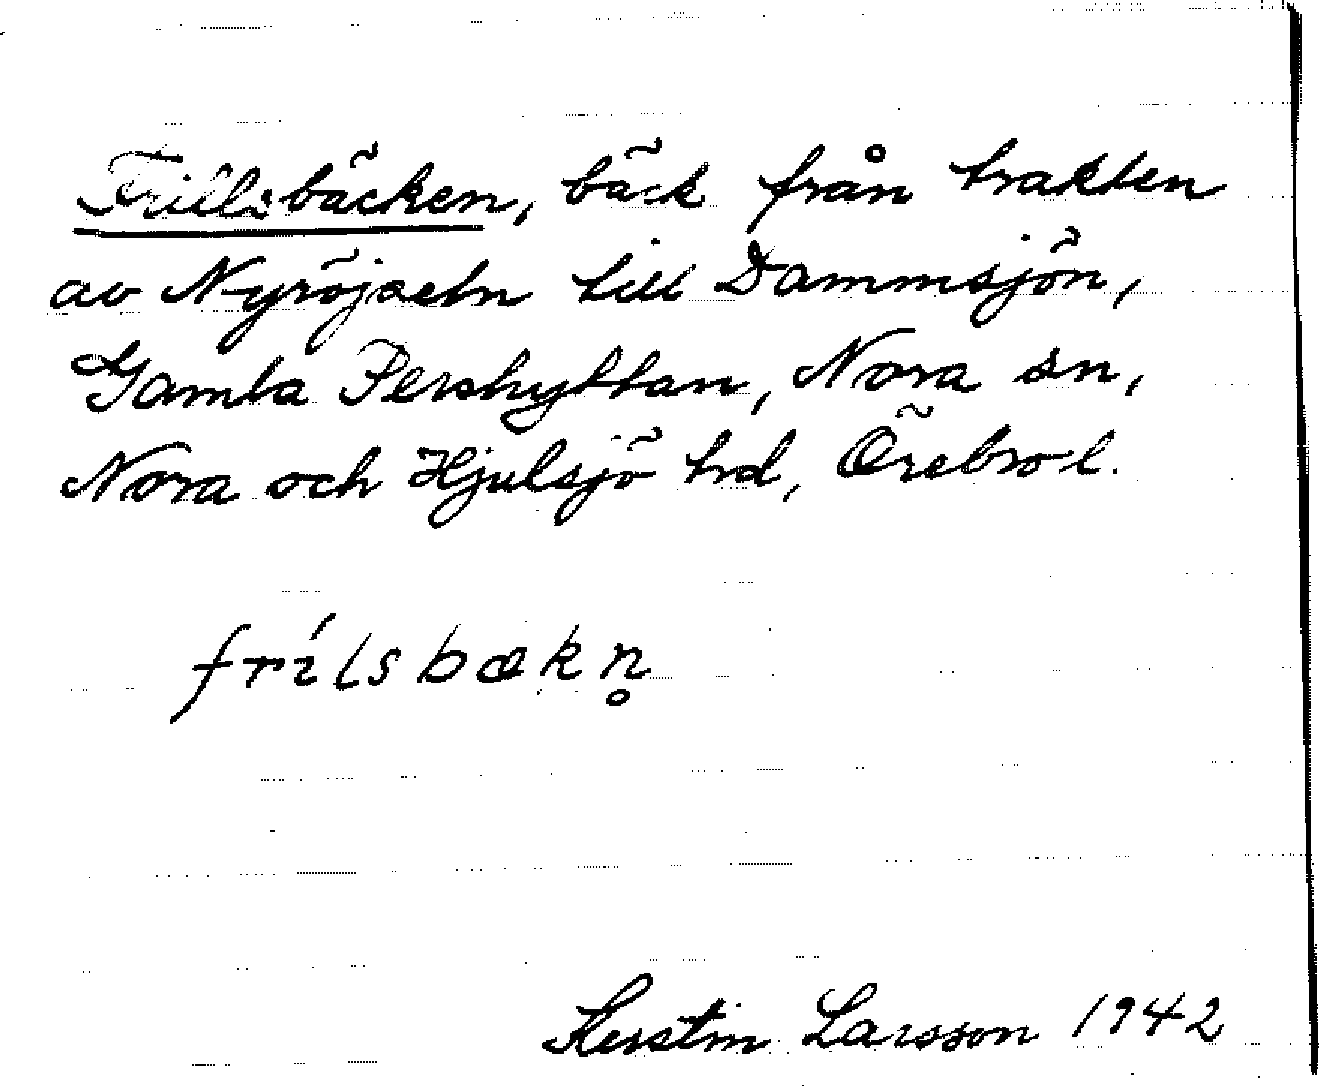 Frillsbäcken, bäck från trakten
av Nyröjseln till Dammsjön,
Gamla Pershyttan, Nora sn,
Nora och Hjulsjö hrd, Örebro l.
frílsbækn̥
Kerstin Larsson 1942